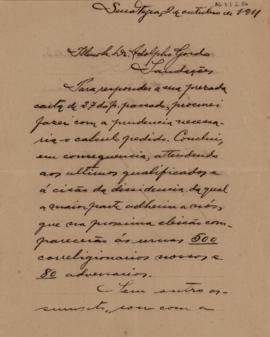 2 de outubro de 1911
Illmo. Sr. Dr. Adolpho Gordo
Saudações
Para responder a sua prezada
carta de 27 do p. passado, procurei
fazer com a prudencia necessa-
ria o calculo pedido. Conclui,
em consequencia, attendendo
aos ultimos qualificados e
á cisão da dissidencia da qual
a maior parte adheriu a nós,
que na proxima eleição com-
parecerão ás urnas 500
correligionarios nossos e
80 adversarios.
Sem outro as-
sumpto, sou com a